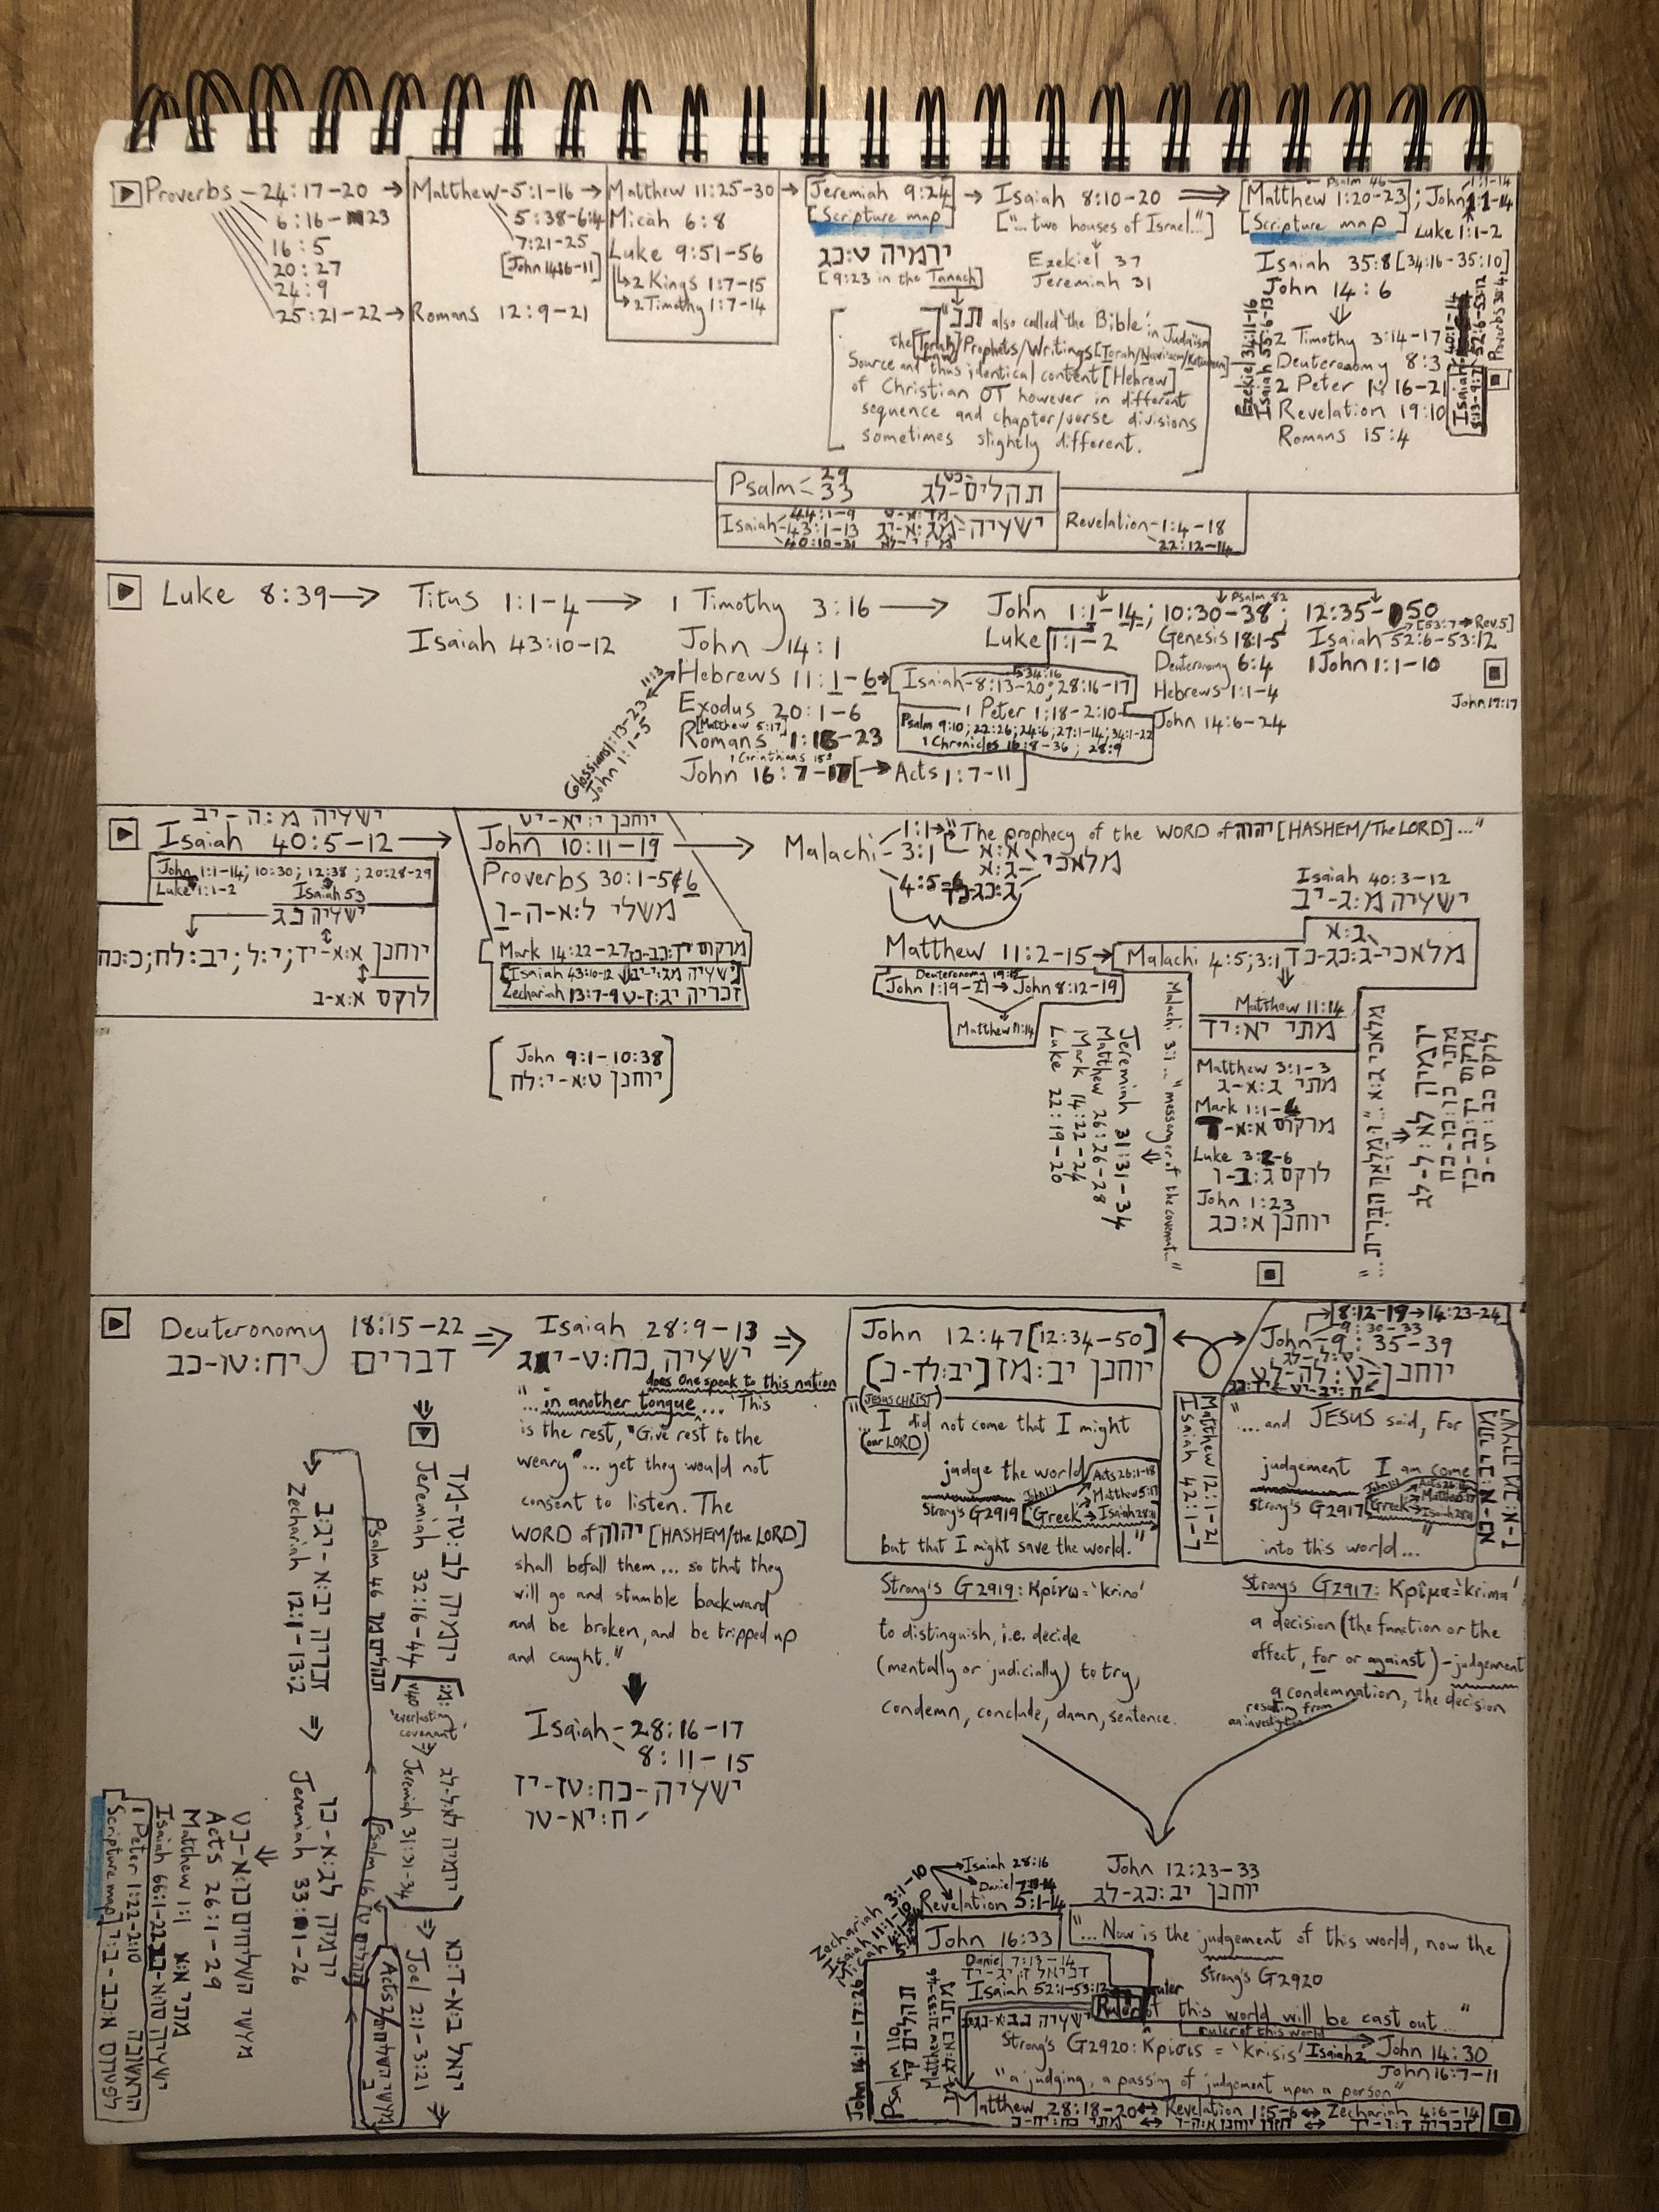 Proverbs - 24:17-20 → Matthew - 5:1-16 → Matthew 11:25-30 → Jeremiah 9:24 → Isaiah 8:10-20 ⇒ [Matthew 1:20-23]; John 1:1-14
Psalm 46
6:16-23
5:38-6:4
Micah 6:8
[Scripture map]
["... two houses of Israel..."]
[Scripture map]
Luke 1:1-2
16:5
7:21-25
Luke 9:51-56
ירמיה ט:כג
Ezekiel 37
Isaiah 35:8 [34:16-35:10]
20:27
↳ 2 Kings 1:7-15
[9:23 in the Tanach]
Jeremiah 31
John 14:6
24:9
↳ 2 Timothy 1:7-14
25:21-22 → Romans 12:9-21
תנ"ך also called 'the Bible' in Judaism
the [Torah]/Prophets/Writings
Source and thus identical content [Hebrew]
of Christian OT however in different
sequence and chapter/verse divisions
sometimes slightly different.
2 Timothy 3:14-17
Deuteronomy 8:3
2 Peter 1:16-21
Revelation 19:10
Romans 15:4
Ezekiel 34:11-16
Isaiah 55:6-13
Psalm - 29
33
תהלים - לג
Isaiah - 44:1-9
43:1-13
40:10-31
ישעיה - מג:א-יג
Revelation - 1:4-18
22:12-14
Luke 8:39 → Titus 1:1-4 → 1 Timothy 3:16 → John 1:1-14; 10:30-38; 12:35-50
Psalm 82
Isaiah 43:10-12
John 14:1
Luke 1:1-2
Genesis 18:1-5
Isaiah 52:6-53:12
[53:7 → Rev.5]
11:3
Hebrews 11:1-6 →
Isaiah - 8:13-20; 28:16-17
Deuteronomy 6:4
1 John 1:1-10
Exodus 20:1-6
1 Peter 1:18-2:10
Hebrews 1:1-4
[Matthew 5:17]
Romans 1:16-23
Psalm 9:10; 22:26; 24:6; 27:1-14; 34:1-22
1 Chronicles 16:8-36; 28:9
John 14:6-24
John 17:17
John 16:7-17 [→ Acts 1:7-11]
Colossians 1:13-23
John 1:1-5
ישעיה מ:ה-יב
Isaiah 40:5-12 →
John 1:1-14; 10:30; 12:38; 20:28-29
Luke 1:1-2
Isaiah 53
ישעיה נג
יוחנן א:א-יד; י:ל; יב:לח; כ:כח
לוקס א:א-ב
יוחנן י:יא-יט
John 10:11-19 →
Proverbs 30:1-5&6
משלי ל:א-ה-ו
Mark 14:22-27
מרקוס יד:כב-כז
[Isaiah 43:10-12
ישעיה מג:י-יב]
Zechariah 13:7-9
זכריה יג:ז-ט
[John 9:1-10:38
יוחנן ט:א-י:לח]
Malachi - 1:1 → "The prophecy of the WORD of יהוה [HASHEM/The LORD]..."
3:1
4:5-6
מלאכי א:א
ג:א
ג:כג-כד
Isaiah 40:3-12
ישעיה מ:ג-יב
Matthew 11:2-15 →
Malachi 4:5; 3:1
מלאכי - ג:כג-כד
ג:א
John 1:19-21 → John 8:12-19
Matthew 11:14
Matthew 11:14
מתי יא:יד
Matthew 3:1-3
מתי ג:א-ג
Mark 1:1-4
מרקוס א:א-ד
Luke 3:2-6
לוקס ג:ב-ו
John 1:23
יוחנן א:כג
Jeremiah 31:31-34
Matthew 26:26-28
Mark 14:22-24
Luke 22:19-20
Malachi 3:1 ... "messenger of the covenant..."
מלאכי ג:א ... "ומלאך הברית..."
ירמיה לא:ל-לג
מתי כו:כו-כח
מרקוס יד:כב-כד
לוקס כב:יט-כ
Deuteronomy 18:15-22 ⇒ Isaiah 28:9-13 ⇒
דברים יח:טו-כב
ישעיה כח:ט-יג
does One speak to this nation
"... in another tongue... 'This
is the rest, "Give rest to the
weary"... yet they would not
consent to listen. The
WORD of יהוה [HASHEM/the LORD]
shall befall them... so that they
will go and stumble backward
and be broken, and be tripped up
and caught."
Isaiah - 28:16-17
8:11-15
ישעיה - כח:טז-יז
ח:יא-טו
John 12:47 [12:34-50]
יוחנן יב:מז [יב:לד-נ]
(JESUS CHRIST)
"... I did not come that I might
(our LORD)
judge the world
Strong's G2919 [Greek →
Acts 26:1-18
Matthew 5:17
but that I might save the world."
Strong's G2919: Κρίνω = 'krino'
to distinguish, i.e. decide
(mentally or judicially) to try,
condemn, conclude, damn, sentence.
8:12-19 → 14:23-24
9:30-33
John - 9:35-39
יוחנן - ט:לה-לט
Matthew 12:1-21
Isaiah 42:1-7
"... and JESUS said, For
judgement I am come
Strong's G2917 [Greek
into this world..."
Strong's G2917: Κρίμα = 'krima'
a decision (the function or the
effect, for or against) - judgement
a condemnation, the decision
resulting from
an investigation
John 12:23-33
יוחנן יב:כג-לג
"... Now is the judgement of this world, now the
Strong's G2920
Ruler of this world will be cast out..."
ruler of this world
Isaiah 2
John 14:30
John 16:7-11
Strong's G2920: Κρίσις = 'krisis'
"a judging, a passing of judgement upon a person"
Isaiah 28:16
Daniel 7:13-14
Revelation 5:1-14
Zechariah 3:1-10
Isaiah 11:1-10
John 16:33
Daniel 7:13-14
דניאל ז:יג-יד
Isaiah 52:1-53:12
Psalm 110
תהלים קי
Matthew 21:33-46
Matthew 28:18-20 ↔ Revelation 1:5-6 ↔ Zechariah 4:6-14
מתי כח:יח-כ ↔ חזון יוחנן א:ה-ו ↔ זכריה ד:ו-יד
ירמיה לב:טז-מד
Jeremiah 32:16-44
[v40 'everlasting covenant'
⇒ Jeremiah 31:31-34
ירמיה לא:ל-לג]
⇒ Joel 2:1-3:21
יואל ב:א-ד:כא
Psalm 46 תהלים מו
Psalm 16 תהלים טז
Acts 2
מעשי השליחים ב
זכריה יב:א-יג:ב
Zechariah 12:1-13:2 ⇒
ירמיה לג:א-כו
Jeremiah 33:1-26
מעשי השליחים כו:א-כט
Acts 26:1-29
Matthew 1:1 מתי א:א
Isaiah 66:1-22 ישעיה סו:א-כב
1 Peter 1:22-2:10
[Scripture map]